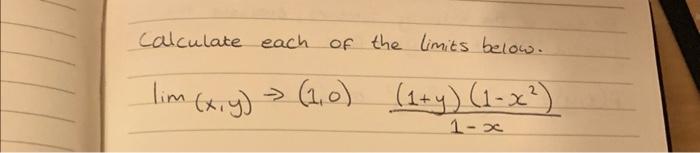 Calculate each of the limits below.
lim (x,y) → (1,0) (1+y)(1-x²)
1-x